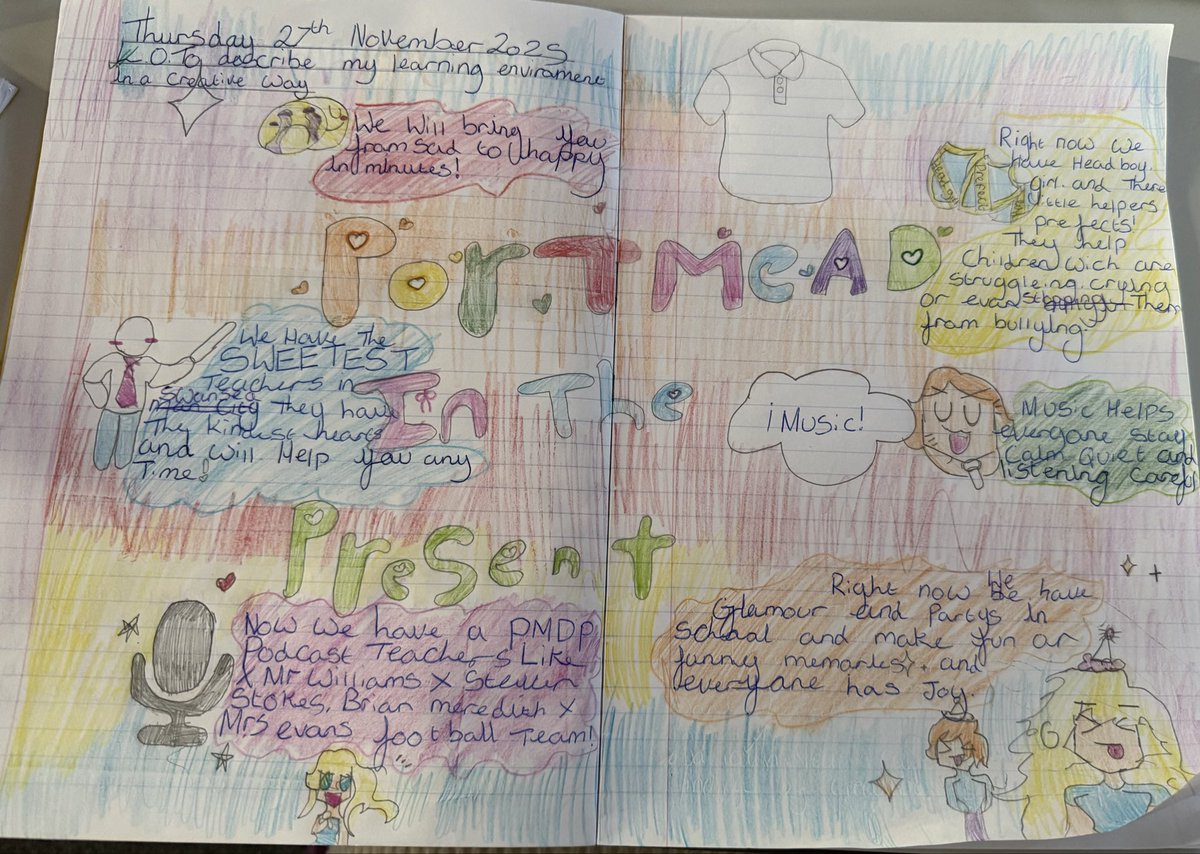 Thursday 27th November 2025
L.O. To describe my learning enviroment
in a creative way
We will bring you
from sad to happy
in minutes!
PorTMeAD
In The
Present
We Have The
SWEETEST
Teachers in
Swansea
They have
They kindest hearts
and will Help you any
Time!
Now we have a PMDP
Podcast Teachers Like
x Mr Williams x Steven
Stokes, Brian meredith x
Mrs evans football Team!
Right now we
have Head boy,
girl. and There
little helpers
prefects!
They help
Children wich are
struggleing, crying
or evan stopping Them
from bullying
Head girl
Prefect
¡Music!
Music Helps
everyone stay
Calm Quiet and
listening
Right now we have
Glamour and Partys in
school and make fun or
funny memories, and
everyone has Joy.